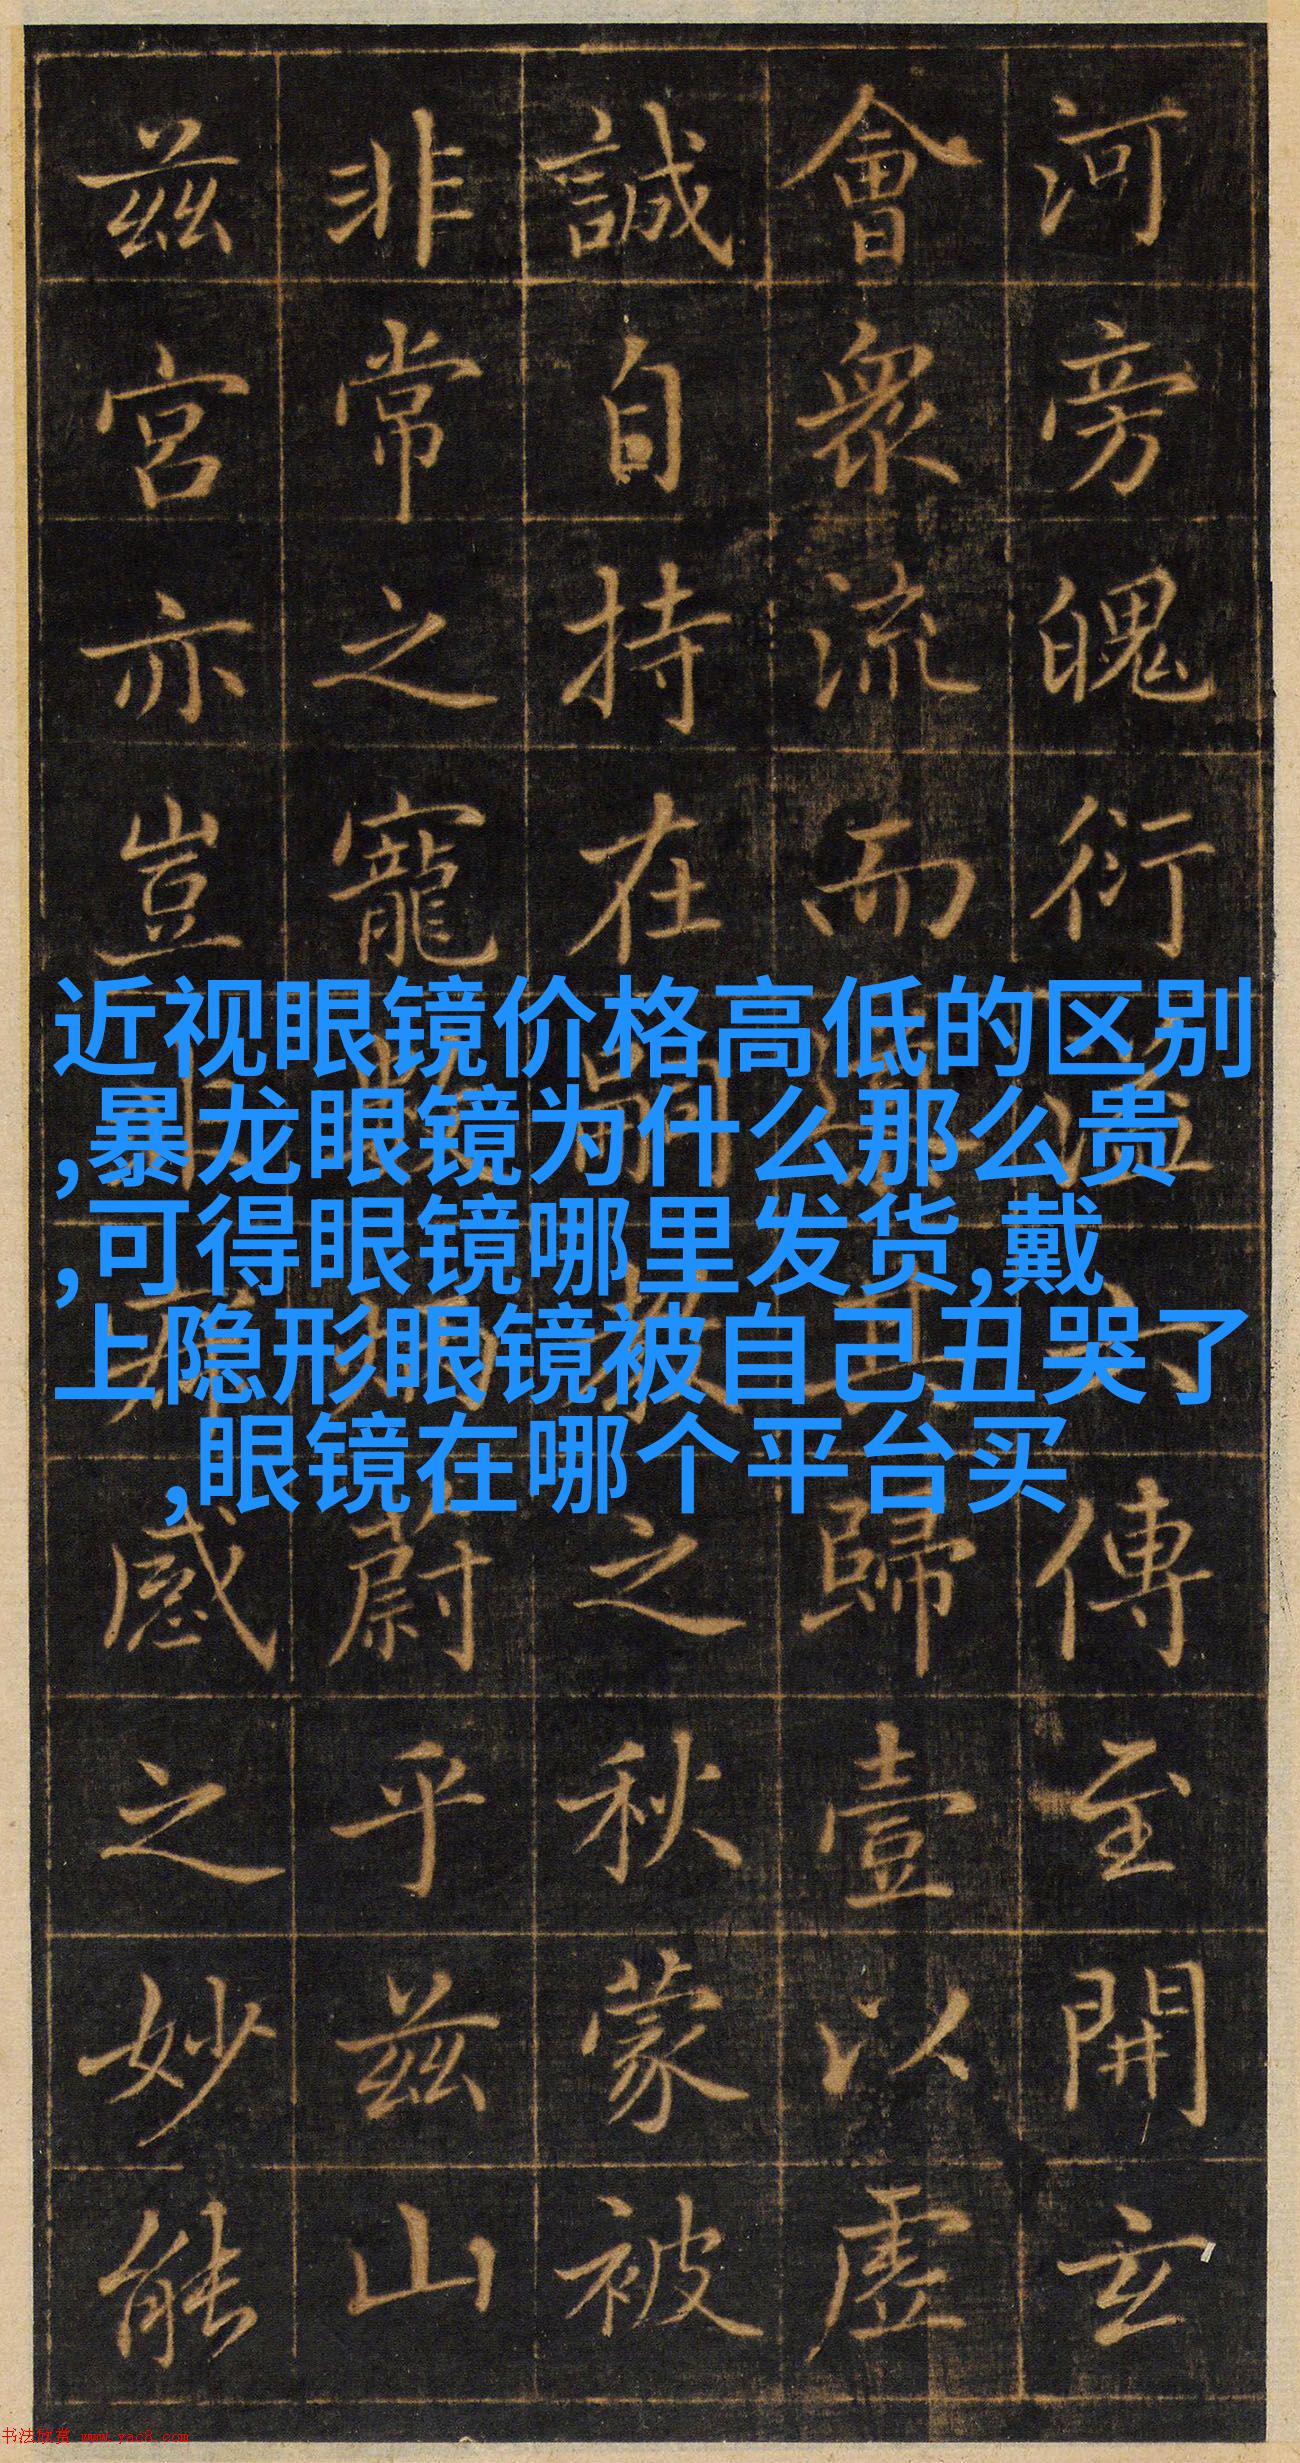 河旁魄衍傳至開玄
會衆流而歸壹以虛
誠自持在之秋蒙被
非常之寵蔚乎茲山
茲宮亦豈感之妙能
近视眼镜价格高低的区别
,暴龙眼镜为什么那么贵
,可得眼镜哪里发货,戴
上隐形眼镜被自己丑哭了
,眼镜在哪个平台买
书法欣赏 www.yac8.com